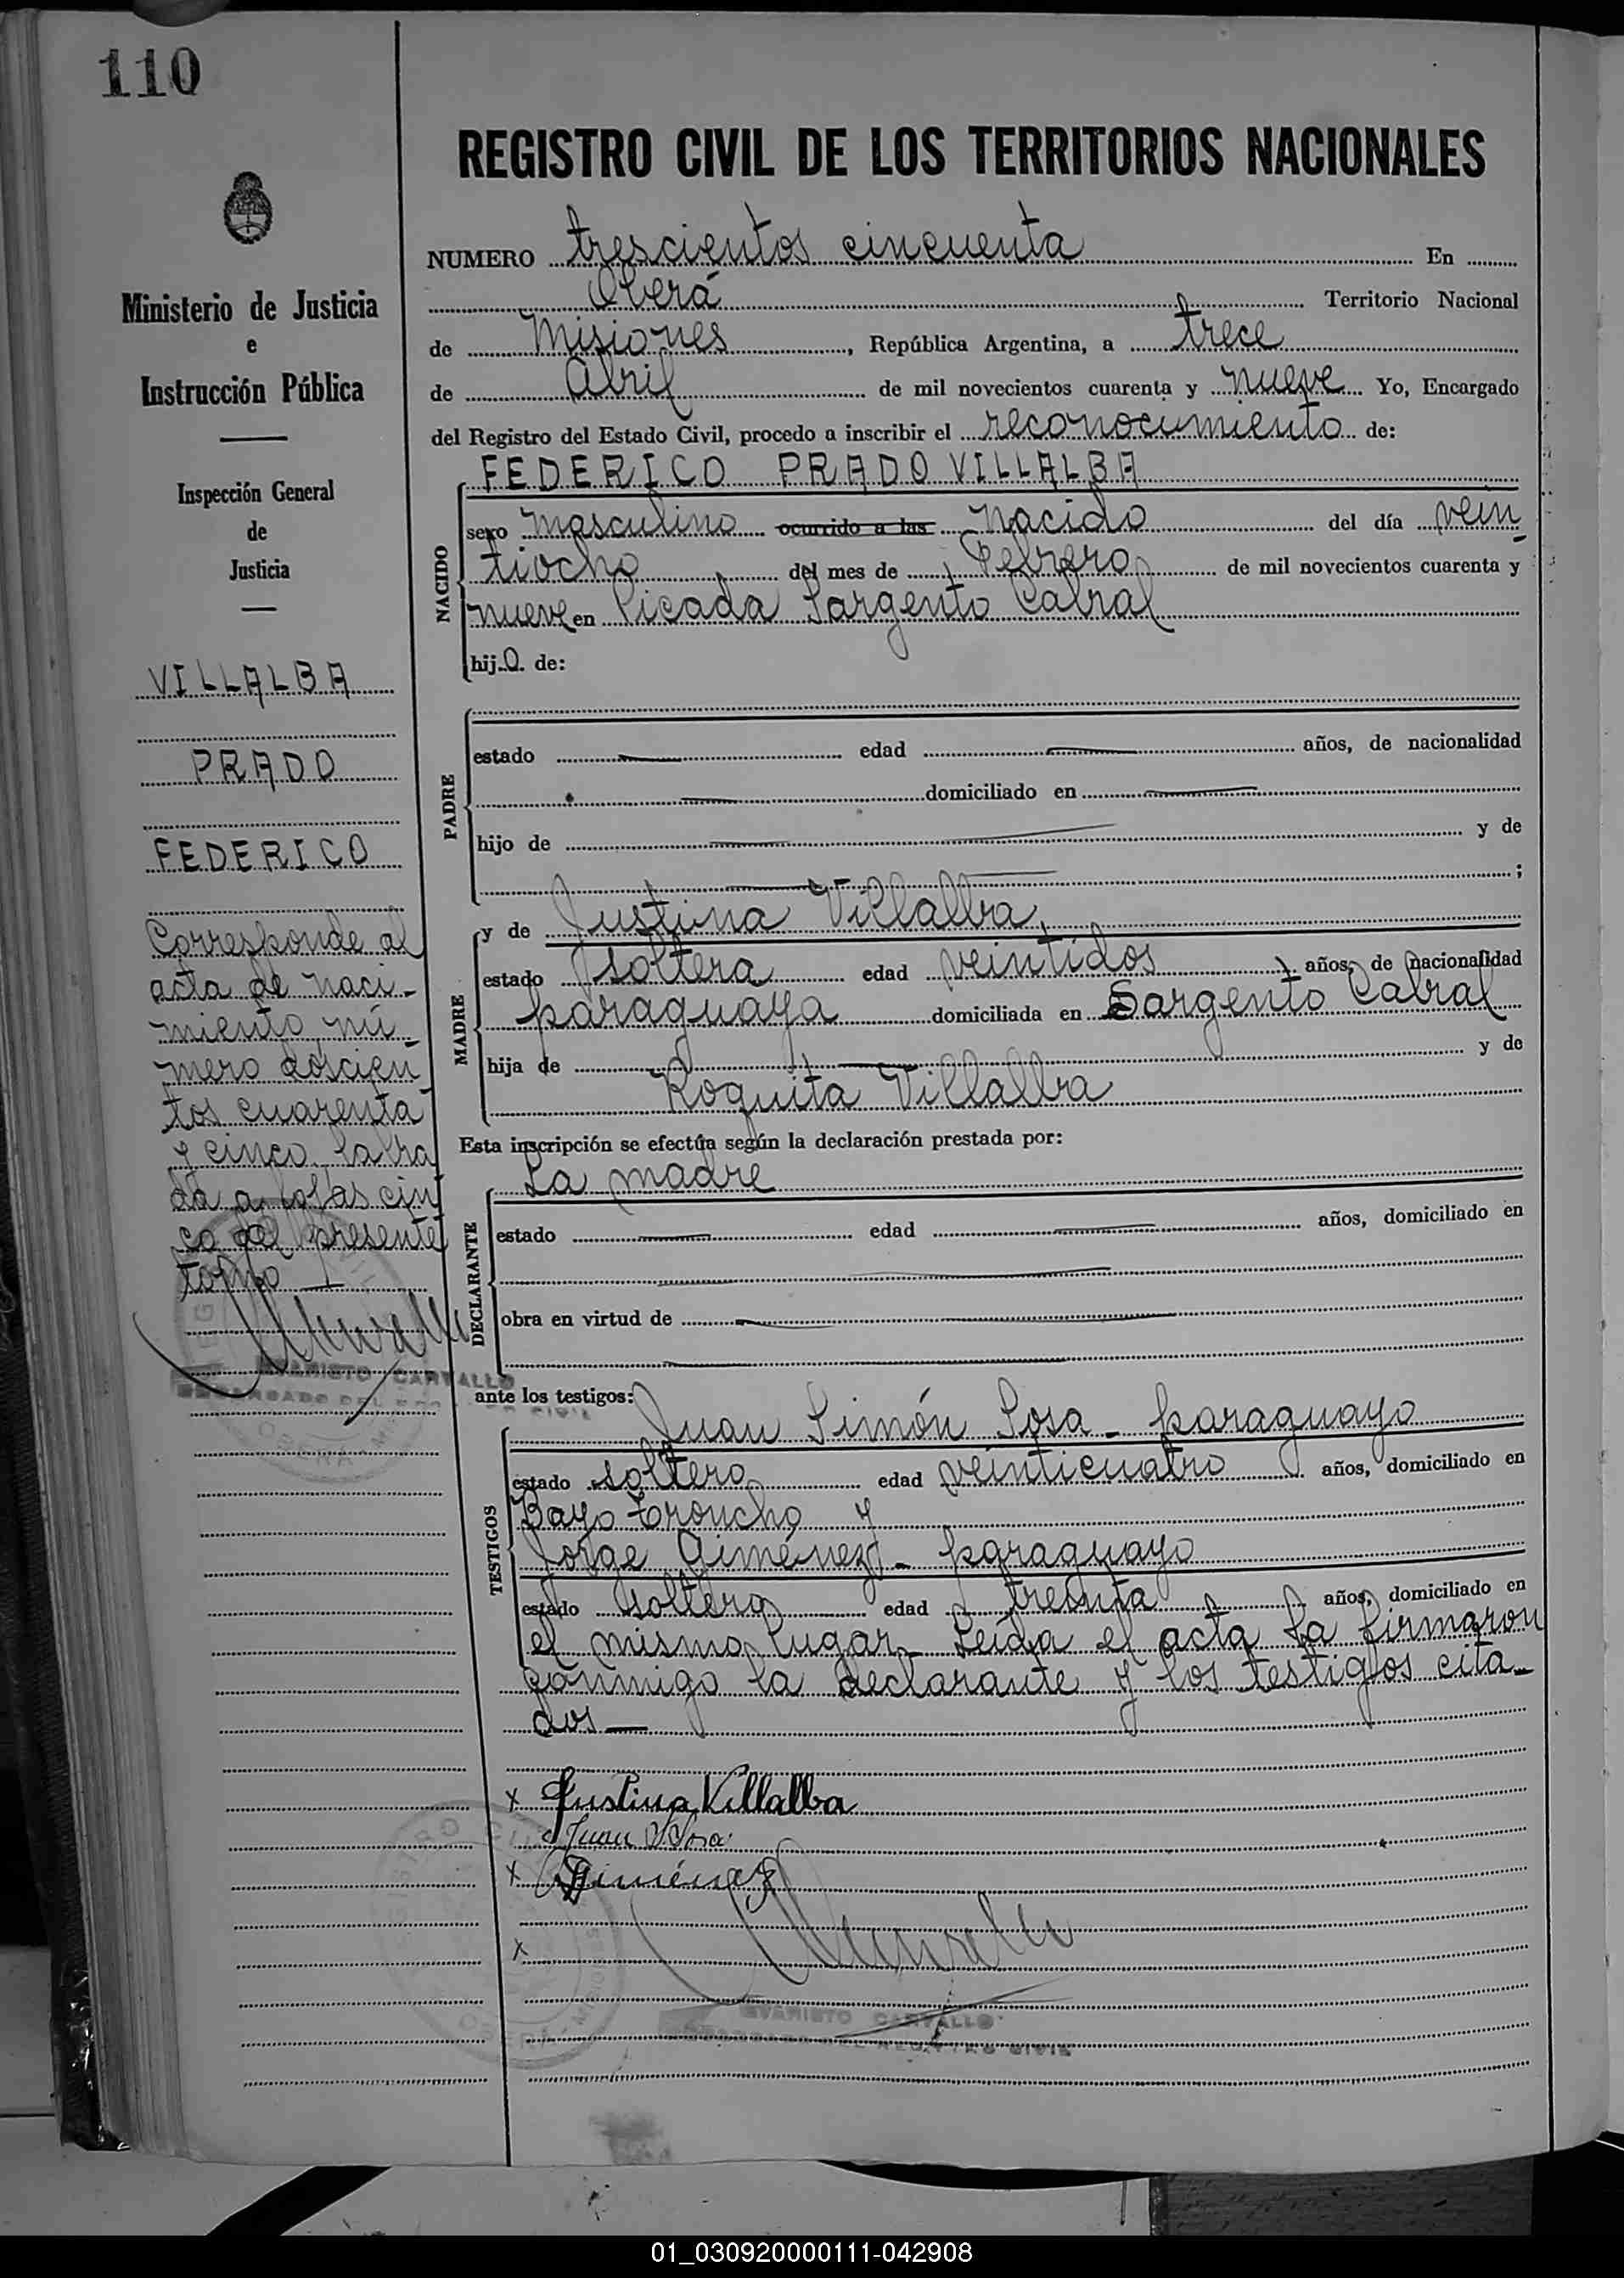 110
REGISTRO CIVIL DE LOS TERRITORIOS NACIONALES
Ministerio de Justicia
e
Instrucción Pública
Inspección General
de
Justicia
VILLALBA
PRADO
FEDERICO
Corresponde al
acta de naci-
miento nú-
mero doscien
tos cuarenta
y cinco labra
da a fojas cin
co del presente
tomo I
EVARISTO CARVALLO
NUMERO trescientos cincuenta En
Oberá Territorio Nacional
de Misiones, República Argentina, a trece
de Abril de mil novecientos cuarenta y nueve Yo, Encargado
del Registro del Estado Civil, procedo a inscribir el reconocimiento de:
FEDERICO PRADO VILLALBA
NACIDO
sexo masculino ocurrido a las nacido del día vein
tiocho del mes de Febrero de mil novecientos cuarenta y
nueve en Picada Sargento Cabral
hijo de:
PADRE
estado edad años, de nacionalidad
domiciliado en
hijo de y de
;
MADRE
y de Justina Villalba
estado soltera edad veintidos años, de nacionalidad
paraguaya domiciliada en Sargento Cabral
hija de y de
Roquita Villalba
Esta inscripción se efectúa según la declaración prestada por:
DECLARANTE
La madre
estado edad años, domiciliado en
obra en virtud de
ante los testigos:
TESTIGOS
Juan Simón Sosa - paraguayo
estado soltero edad veinticuatro años, domiciliado en
Bayo Troncho y
Jorge Giménez - paraguayo
estado soltero edad treinta años, domiciliado en
el mismo lugar. Leída el acta la firmaron
conmigo la declarante y los testigos cita-
dos —
x Justina Villalba
Juan S. Sosa
x Giménez
x
EVARISTO CARVALLO
ENCARGADO DEL REGISTRO CIVIL
01_030920000111-042908